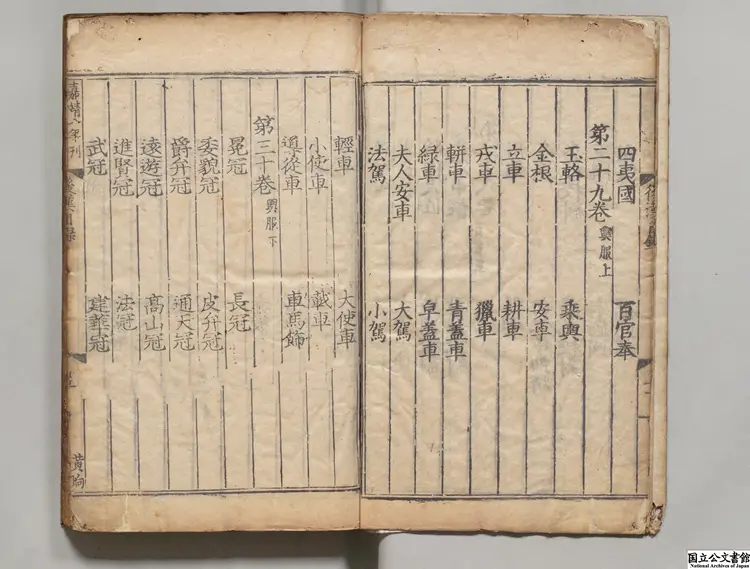 四夷國 百官奉
第二十九卷 輿服上
玉輅 乘輿
金根 安車
立車 耕車
戎車 獵車
軿車 青蓋車
緑車 皁蓋車
夫人安車 大駕
法駕 小駕
輕車 大使車
小使車 載車
導從車 車馬飾
第三十卷 輿服下
冕冠 長冠
委貌冠 皮弁冠
爵弁冠 通天冠
遠遊冠 高山冠
進賢冠 法冠
武冠 建華冠
嘉靖八年刊
黄珣
国立公文書館
National Archives of Japan